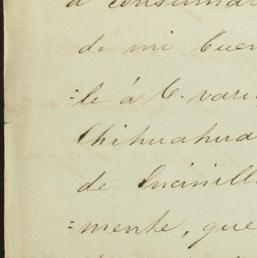 á consumar
de mi buen
=le á C. vari
Chihuahua
de Encinill
=mente, que